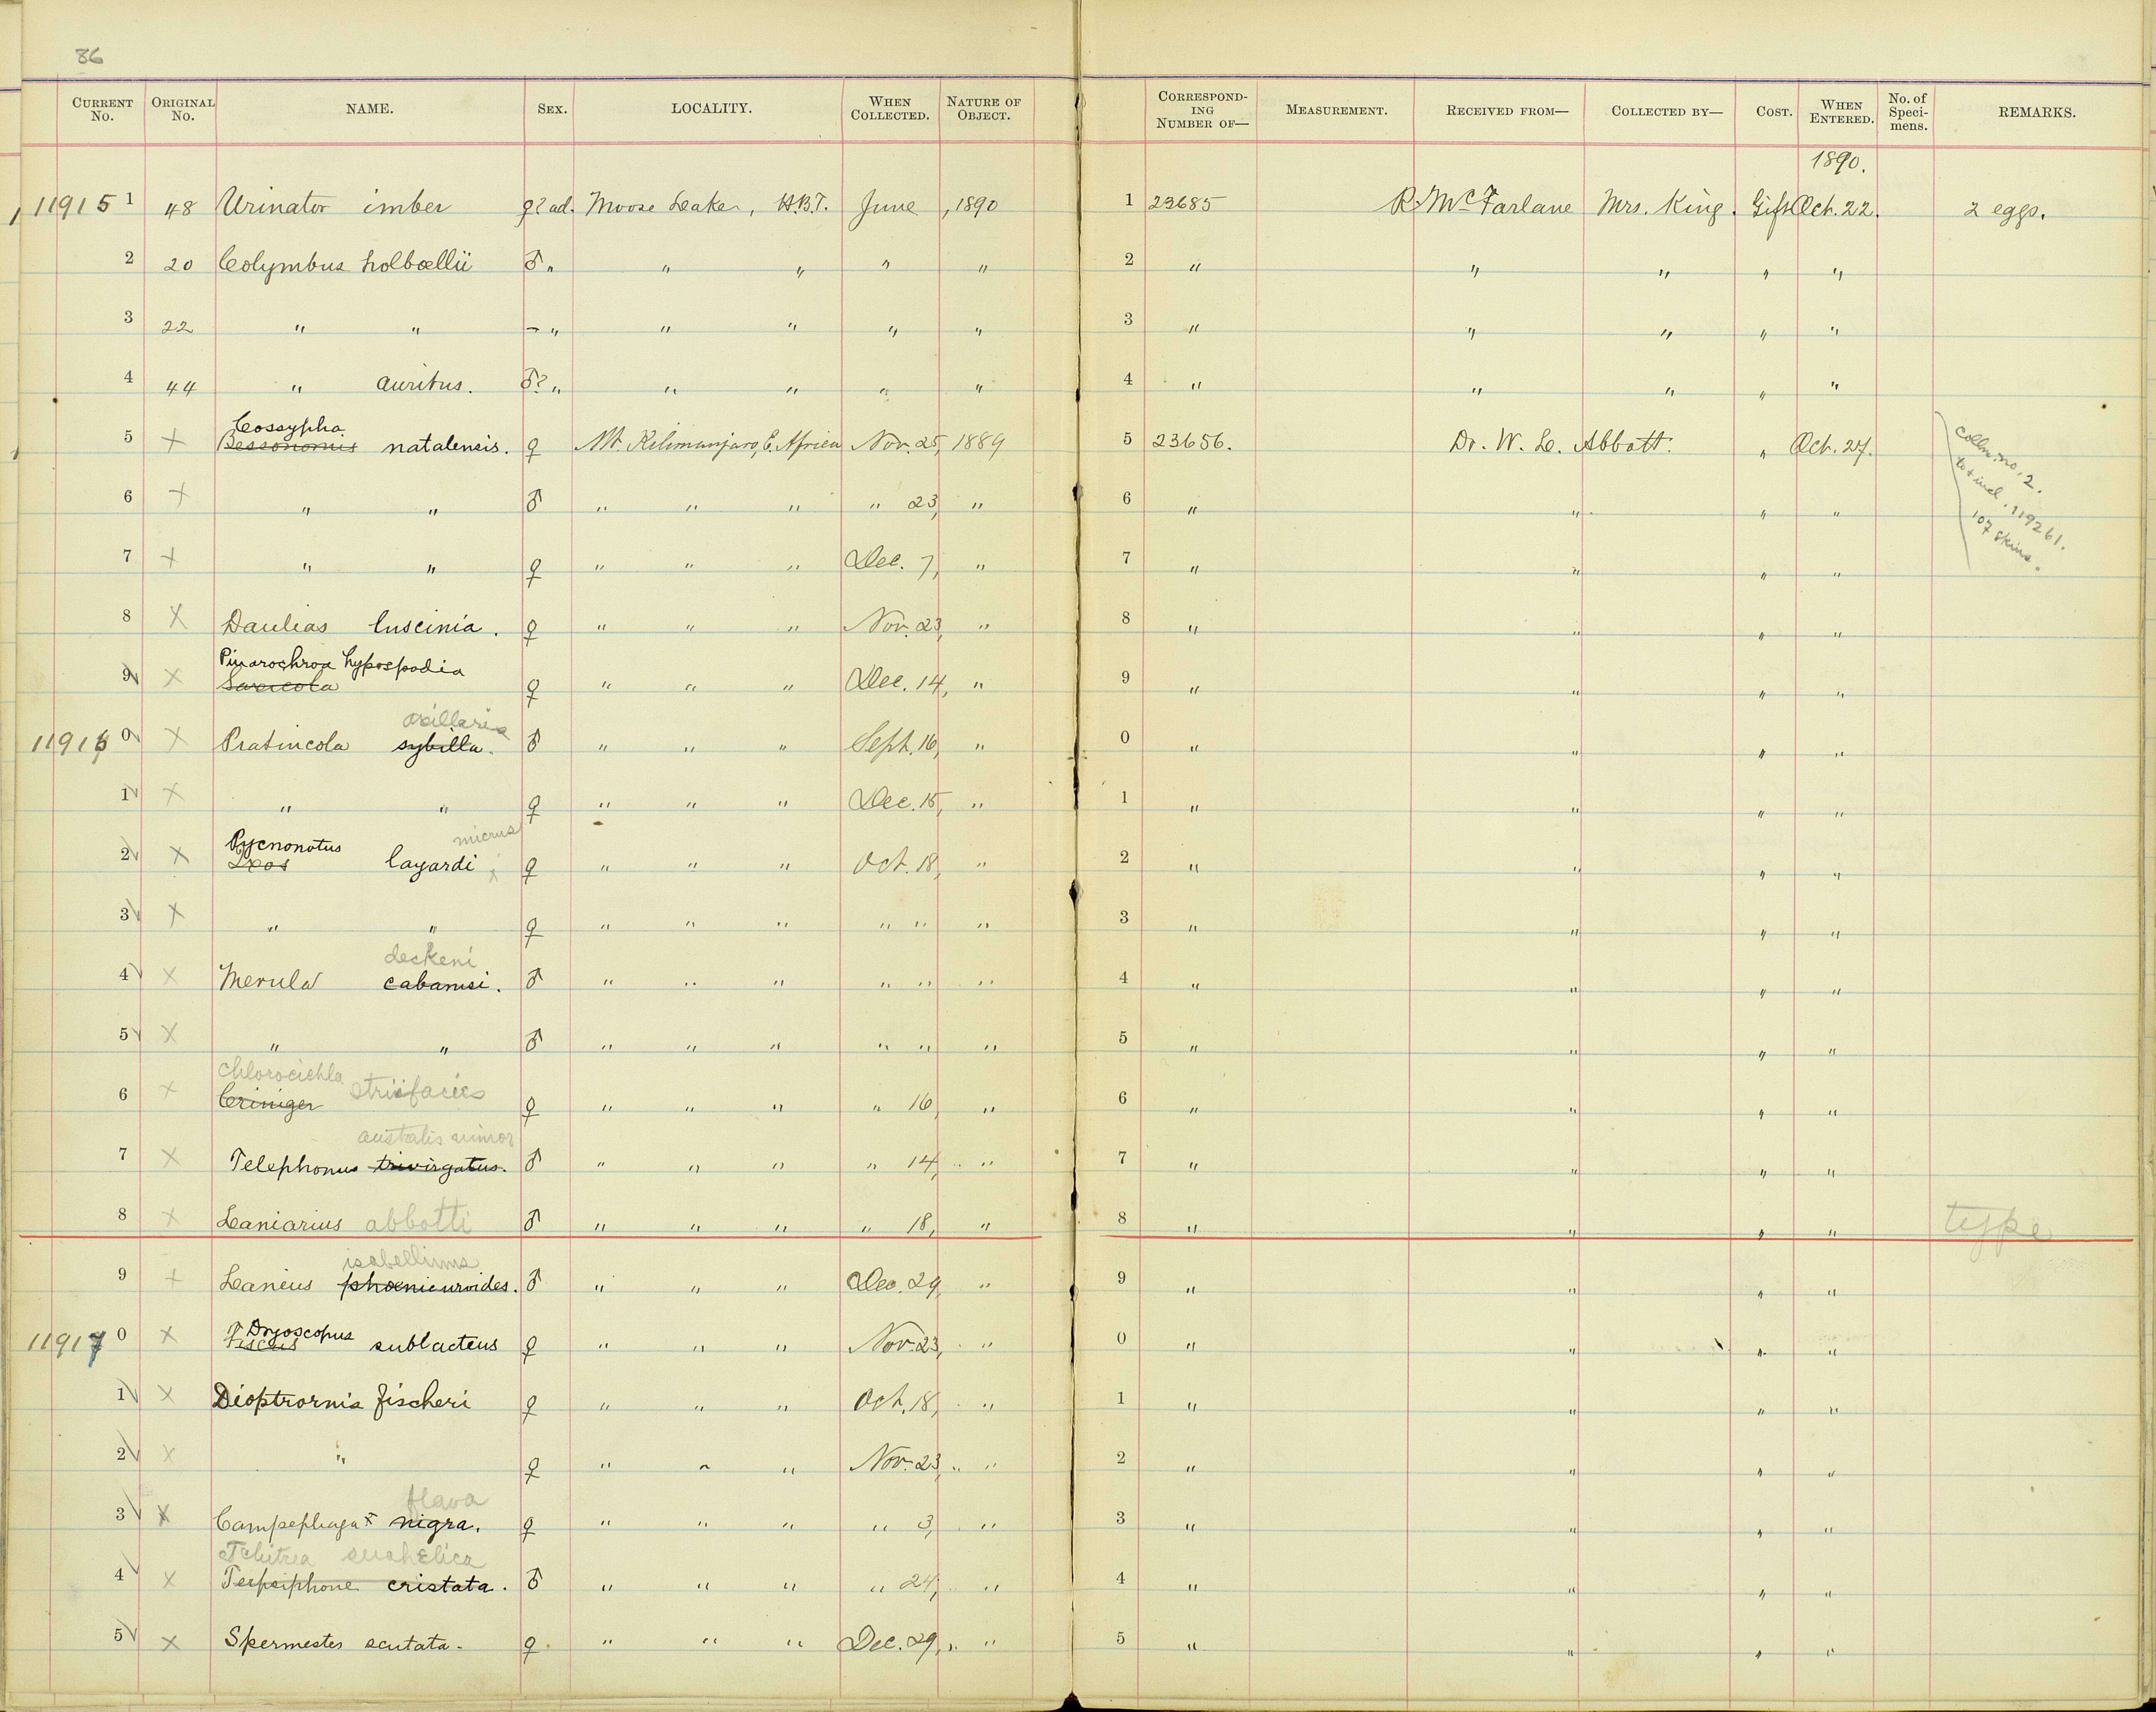 86
CURRENT No. ORIGINAL No. NAME. SEX. LOCALITY. WHEN COLLECTED. NATURE OF OBJECT. CORRESPONDING NUMBER OF— MEASUREMENT. RECEIVED FROM— COLLECTED BY— COST. WHEN ENTERED. No. of Specimens. REMARKS.
1890.
11915 1 48 Urinator imber ♀? ad. Moose Lake, H.B.T. June, 1890 1 23685 R. McFarlane Mrs. King. Gift Oct. 22. 2 eggs.
2 20 Colymbus holbœllii ♂ " " " " " 2 " " " " "
3 22 " " – " " " " " 3 " " " " "
4 44 " auritus. ♂? " " " " " 4 " " " " "
Cossypha
5 + Bessonornis natalensis. ♀ Mt. Kilimanjaro, E. Africa Nov. 25, 1889 5 23656. Dr. W. L. Abbott. " Oct. 27. Colln. no. 2.
to + incl. 119261.
107 skins.
6 + " " ♂ " " " " 23, " 6 " " " "
7 + " " ♀ " " " Dec. 7, " 7 " " " "
8 X Daulias luscinia. ♀ " " " Nov. 23, " 8 " " " "
Pinarochroa hypospodia
9 X Saxicola ♀ " " " Dec. 14, " 9 " " " "
axillaris
11916 0 X Pratincola sybilla. ♂ " " " Sept. 16, " 0 " " " "
1 X " " ♀ " " " Dec. 15, " 1 " " " "
Pycnonotus micrus
2 X Ixos layardi ♀ " " " Oct. 18, " 2 " " " "
3 X " " ♀ " " " " " " 3 " " " "
deckeni
4 X Merula cabanisi. ♂ " " " " " " 4 " " " "
5 X " " ♂ " " " " " " 5 " " " "
Chlorocichla striifacies
6 X Criniger ♀ " " " " 16, " 6 " " " "
australis minor
7 X Telephonus trivirgatus. ♂ " " " " 14, " 7 " " " "
8 X Laniarius abbotti ♂ " " " " 18, " 8 " " " " type
isabellinus
9 + Lanius phœnicuroides. ♂ " " " Dec. 29, " 9 " " " "
Dryoscopus
11917 0 X sublacteus ♀ " " " Nov. 23, " 0 " " " "
1 X Dioptrornis fischeri ♀ " " " Oct. 18, " 1 " " " "
2 X " ♀ " " " Nov. 23, " 2 " " " "
flava
3 X Campephaga X nigra. ♀ " " " " 3, " 3 " " " "
Tchitrea suahelica
4 X Terpsiphone cristata. ♂ " " " " 24, " 4 " " " "
5 X Spermestes scutata. ♀ " " " Dec. 29, " 5 " " " "